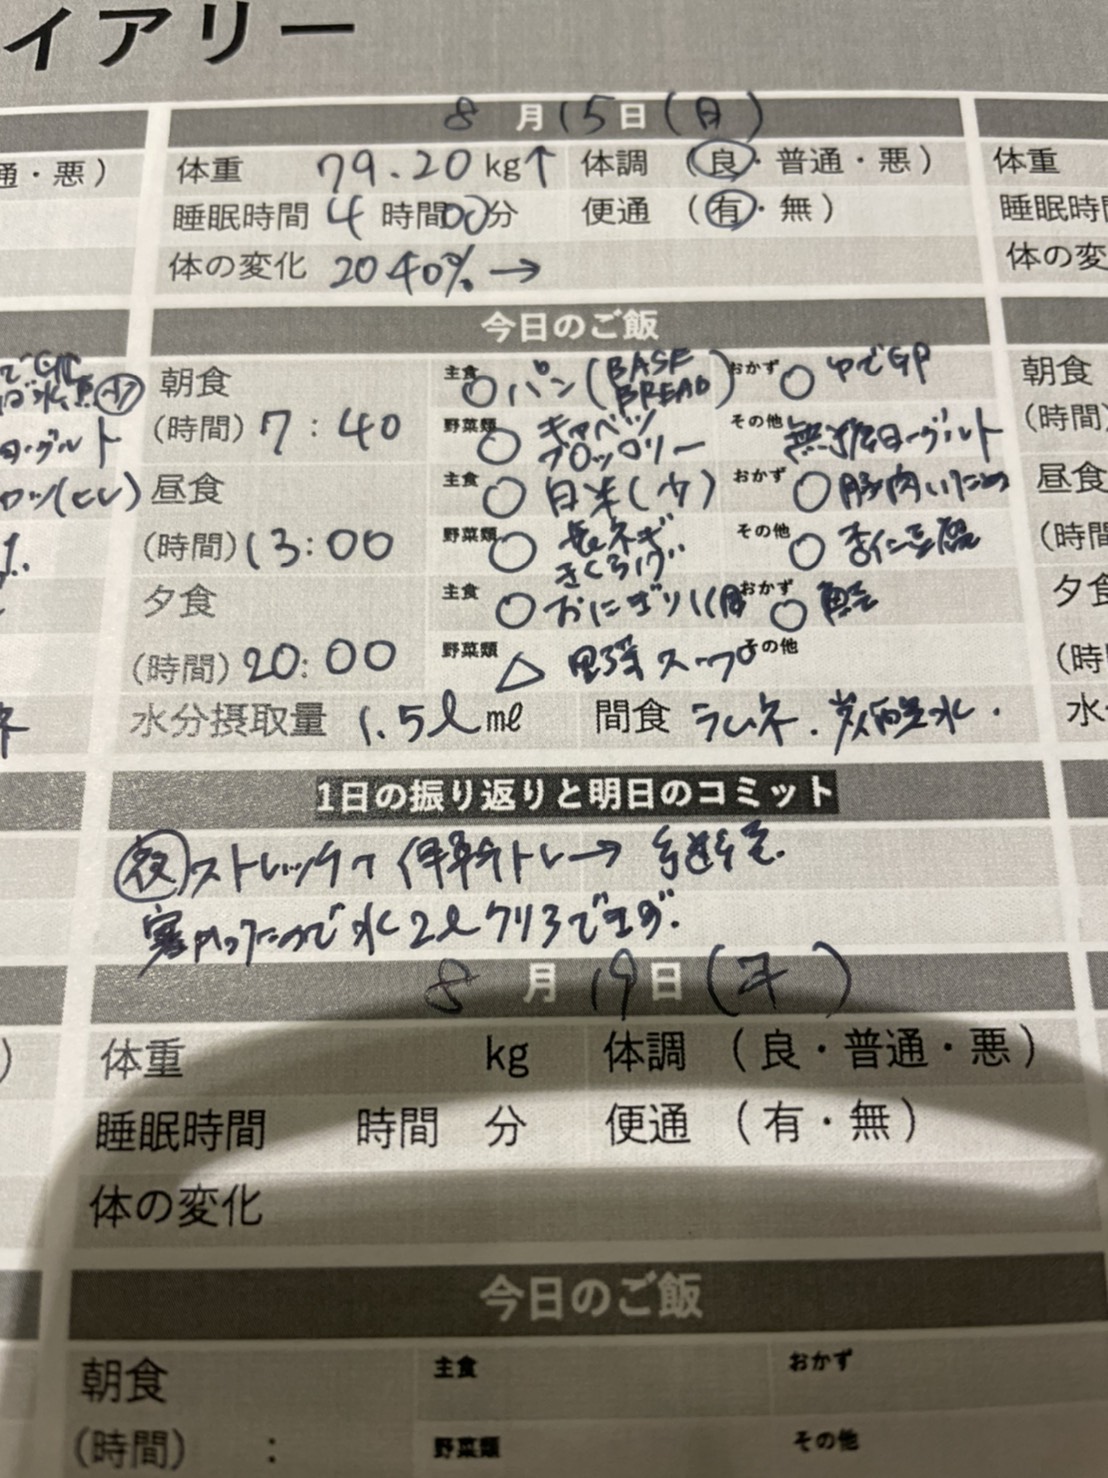 イアリー
8月15日(日)
通・悪)
体重 79.20kg↑ 体調 (良・普通・悪)
体重
睡眠時間 4時間00分 便通 (有・無)
睡眠時間
体の変化 20.40% →
体の変
今日のご飯
朝食 主食 ○パン(BASE BREAD) おかず ○ゆでGP
朝食
(時間) 7:40 野菜類 ○キャベツ ブロッコリー その他 無糖ヨーグルト
(時間)
ヨーグルト
昼食 主食 ○白米(少) おかず ○豚肉いため
昼食
(時間) 13:00 野菜類 ○長ネギ きくらげ その他 ○杏仁豆腐
(時間
夕食 主食 ○おにぎり1個 おかず ○
夕食
(時間) 20:00 野菜類 △野菜スープ その他
(時
水分摂取量 1.5ℓ mℓ 間食 ラムネ、炭酸水.
水
1日の振り返りと明日のコミット
夜 ストレッチ 体幹トレ→継続.
寒かったので水2ℓクリアできず.
8月19日(木)
体重 kg 体調 (良・普通・悪)
睡眠時間 時間 分 便通 (有・無)
体の変化
今日のご飯
朝食 主食 おかず
(時間) : 野菜類 その他